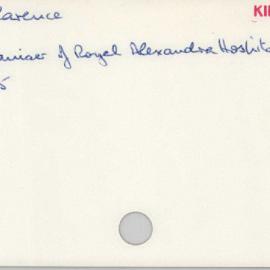 larence KI
of Royal Alexandra Hospita
5